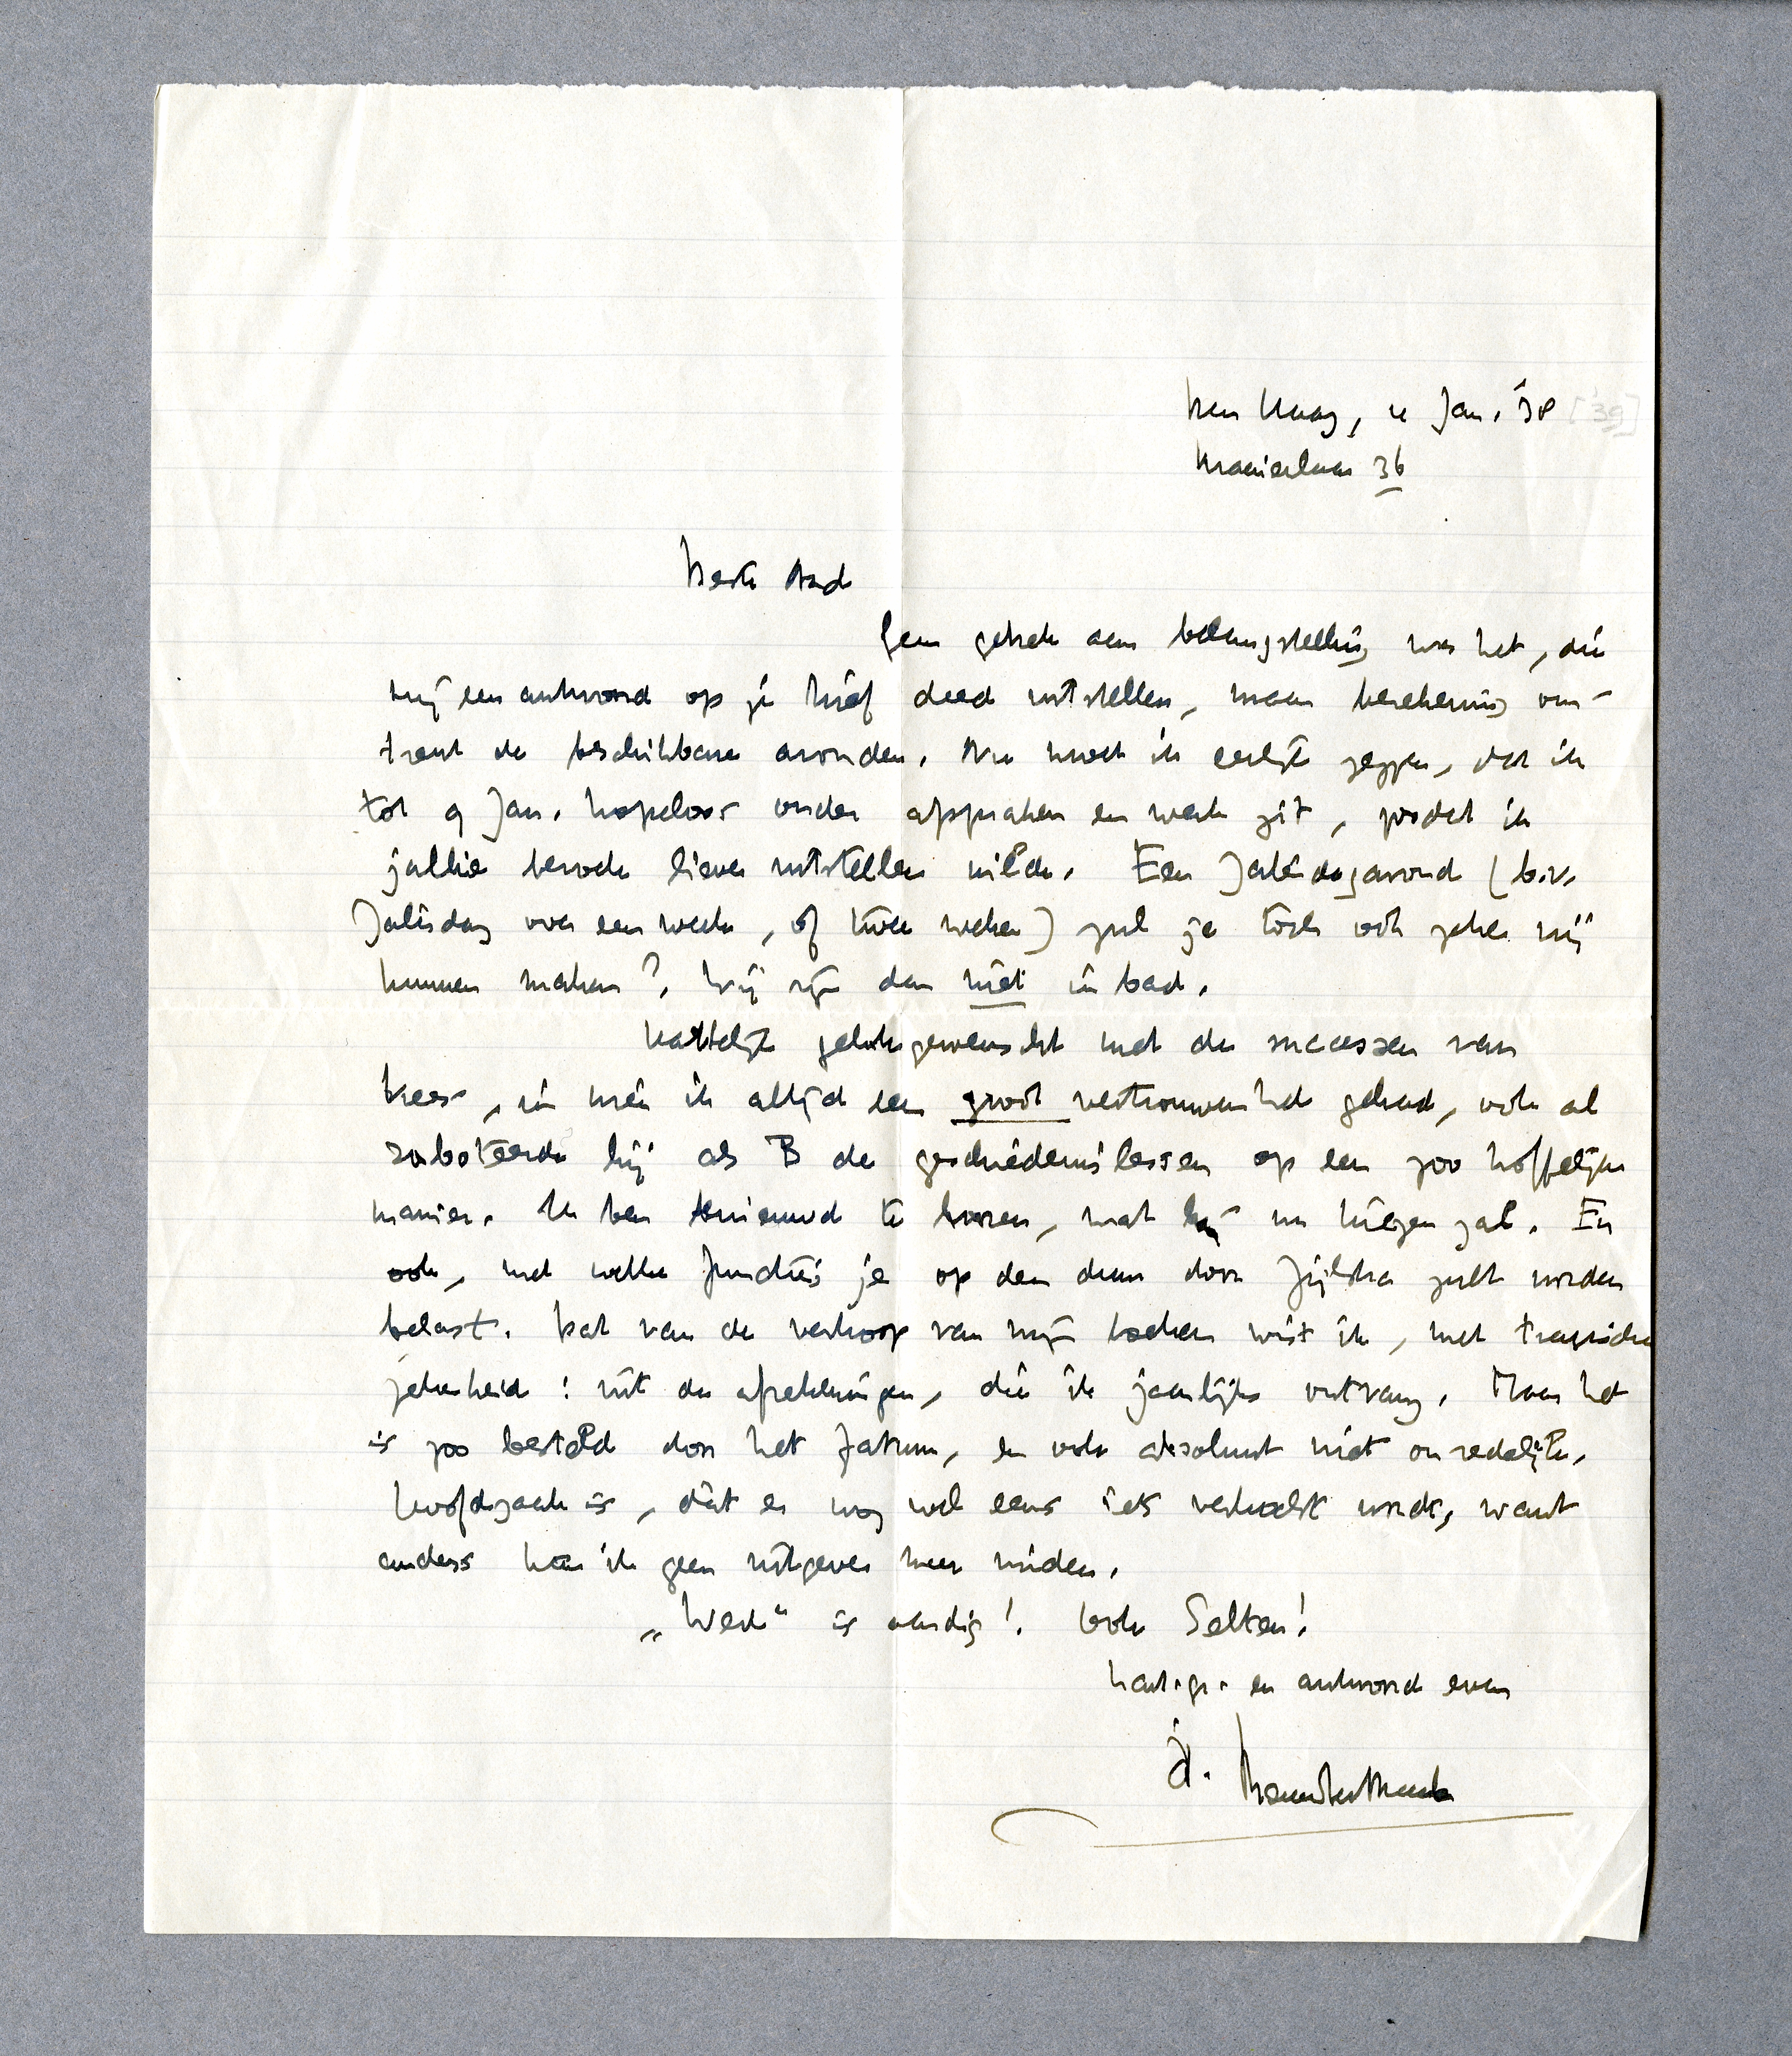 Den Haag, 4 Jan. '38 ['39]
Kraaienlaan 36
Beste Aad
Geen gebrek aan belangstelling was het, die
mij een antwoord op je brief deed uitstellen, maar berekening om-
trent de beschikbare avonden. Nu moet ik eerlijk zeggen, dat ik
tot 9 Jan. hopeloos onder afspraken en werk zit, zoodat ik
jullie bezoek liever uitstellen wilde. Een Zaterdagavond (b.v.
Zaterdag over een week, of twee weken) zul je toch ook zeker vrij
kunnen maken? Wij zijn dan niet in bad.
Hartelijk gelukgewenscht met de successen van
Kees, in wien ik altijd een groot vertrouwen heb gehad, ook al
saboteerde hij als B de geschiedenislessen op een zoo hoffelijke
manier. Ik ben benieuwd te hooren, wat hij nu krijgen zal. En
ook, met welke functies je op den duur door Zijlstra zult worden
belast. Dat van de verkoop van mijn boeken wist ik, met tragische
zekerheid: uit de afrekeningen, die ik jaarlijks ontvang. Maar het
is zoo besteld door het fatum, en ook absoluut niet onredelijk.
Hoofdzaak is, dat er nog wel eens iets verkocht wordt, want
anders kan ik geen uitgever meer vinden.
„Werk" is aardig! Ook Selten!
hart. gr. en antwoord even
je